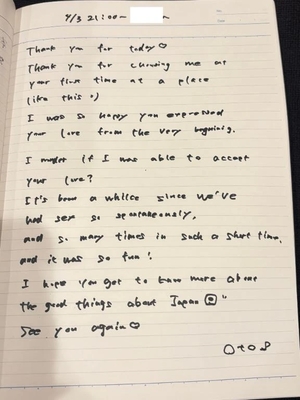 4/3 21:00~
Thank you for today♡
Thank you for choosing me at
your first time at a place
like this :)
I was so happy you expressed
your love from the very beginning.
I wonder if I was able to accept
your love?
It's been a while since we've
had sex so spontaneously,
and so many times in such a short time,
and it was so fun!
I hope you got to know more about
the good things about Japan
See you again♡